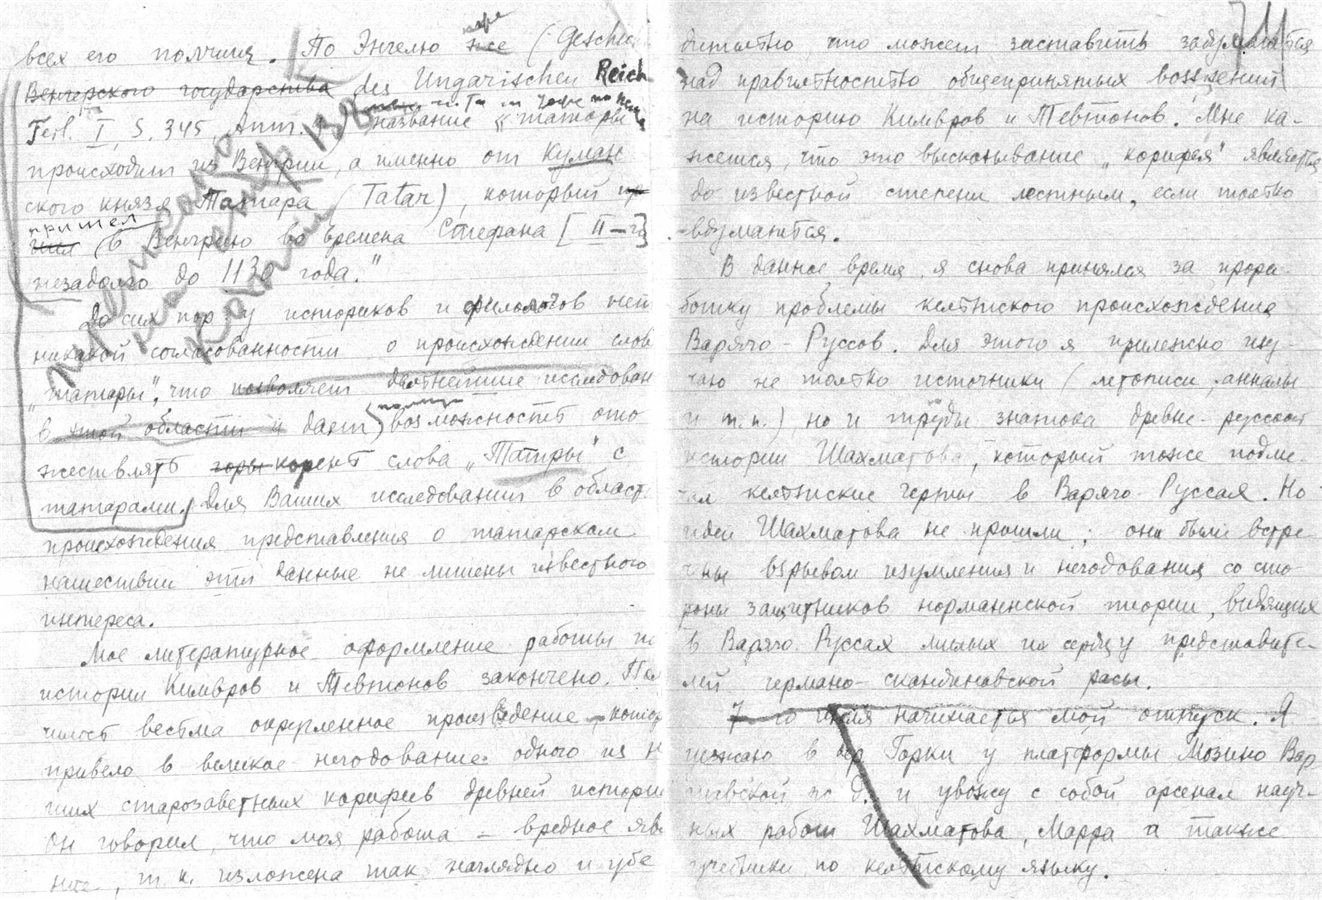 всех его полчищ. По Энгелю же (Geschich
Венгерского государства des Ungarischen Reich
Teil. I, S. 345 Anm. название „татары"
происходит из Венгрии, а именно от Куман
ского князя Татара (Tatar), который
пришел
(в Венгрию во времена Стефана [II-го]
незадолго до 1130 года."
До сих пор у историков и филологов нет
никакой согласованности о происхождении слов
„татары", что позволяет дальнейшие исследован
в этой области и дает возможность ото
жествлять корень слова „Татры" с
татарами. Для Ваших исследований в област
происхождения представления о татарском
нашествии эти данные не лишены известного
интереса.
Мое литературное оформление работы по
истории Кимвров и Тевтонов закончено. Пол
чилось весьма окрепленное произведение, котор
привело в великое негодование одного из н
ших старозаветных корифеев древней истории
Он говорил, что моя работа – вредное явл
ние, т. к. изложена так наглядно и убе
дительно что может заставить задуматься
над правильностью общепринятых воззрений
на историю Кимвров и Тевтонов. Мне ка-
жется, что это высказывание „корифея" является
до известной степени лестным, если только
вдуматься.
В данное время я снова принялся за прора-
ботку проблемы кельтского происхождения
Варяго-Руссов. Для этого я прилежно изу-
чаю не только источники (летописи, анналы
и т. п.) но и труды знатока древне-русской
истории Шахматова, который тоже подме-
тил кельтские черты в Варяго-Руссах. Но
идеи Шахматова не прошли; они были встре-
чены взрывом изумления и негодования со сто-
роны защитников норманнской теории, видящих
в Варяго-Руссах милых их сердцу представите-
лей германо-скандинавской расы.
7 го июля начинается мой отпуск. Я
уезжаю в дер Горки у платформы Мозино Вар
шавской ж. д. и увожу с собой арсенал науч-
ных работ Шахматова, Марра а также
учебники по кельтскому языку.